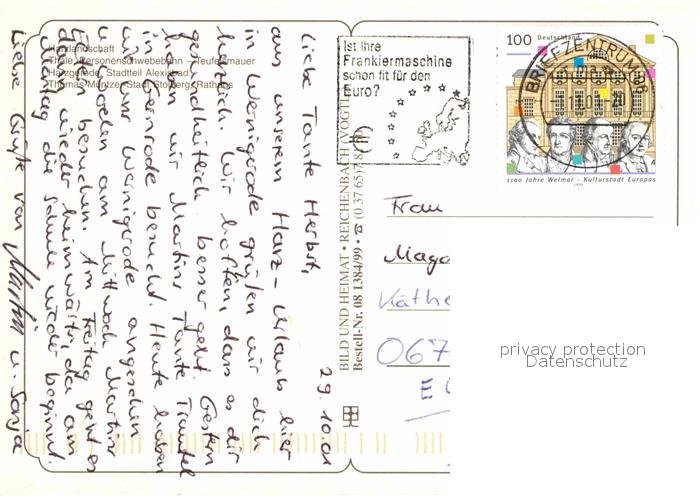 Harzlandschaft
Thale, Personenschwebebahn - Teufelsmauer
Harzgerode, Stadtteil Alexisbad
Thomas-Müntzer-Stadt Stolberg, Rathaus
29.10.01
Liebe Tante Herbst,
aus unserem Harz-Urlaub hier
in Wernigerode grüßen wir dich
herzlich. Wir hoffen, dass es dir
gesundheitlich besser geht. Gestern
haben wir Martins Tante Traudel
in Gernrode besucht. Heute haben
wir uns Wernigerode angesehen
u. wollen am Mittwoch Martins
Eltern besuchen. Am Freitag geht es
dann wieder heimwärts, da am
Montag die Schule wieder beginnt.
Liebe Grüße von Martin u. Sonja
BILD UND HEIMAT • REICHENBACH (VOGTL
Bestell-Nr. 08 1384/99 • ☎ (0 37 65) 7 8
Ist Ihre
Frankiermaschine
schon fit für den
Euro?
100 Deutschland
BRIEFZENTRUM
1100 Jahre Weimar - Kulturstadt Europas
1999
Frau
Magd
Käthe
067
privacy protection
Datenschutz